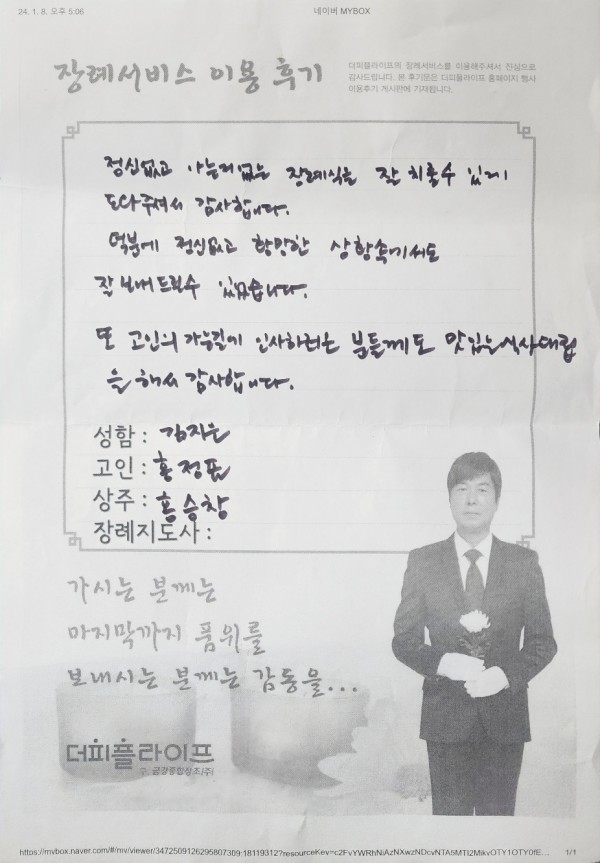 24. 1. 8. 오후 5:06
네이버 MYBOX
장례서비스 이용 후기
더피플라이프의 장례서비스를 이용해주셔서 진심으로
감사드립니다. 본 후기문은 더피플라이프 홈페이지 행사
이용후기 게시판에 기재됩니다.
정신없고 경황없는 장례식을 잘 치룰수 있게
도와주셔서 감사합니다.
덕분에 정신없고 황망한 상황속에서도
잘 보내드릴수 있었습니다.
또 고인의 가는길에 인사하러온 분들께도 맛있는식사대접
을 해서 감사합니다.
성함 : 김지은
고인 : 홍정표
상주 : 홍승창
장례지도사 :
가시는 분께는
마지막까지 품위를
보내시는 분께는 감동을...
더피플라이프
구. 금강종합상조(주)
1/1